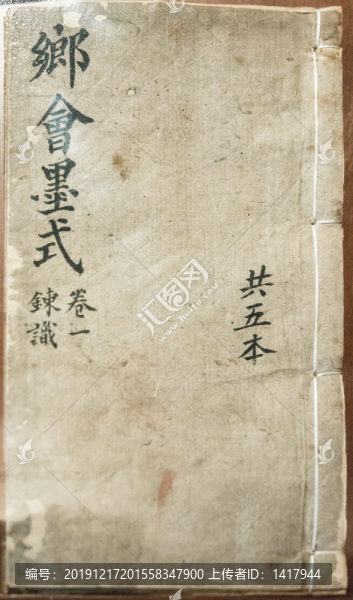 共五本
鄉會墨式
卷一
鍊識
汇图网
www.huitu.com
编号：20191217201558347900 上传者ID：1417944